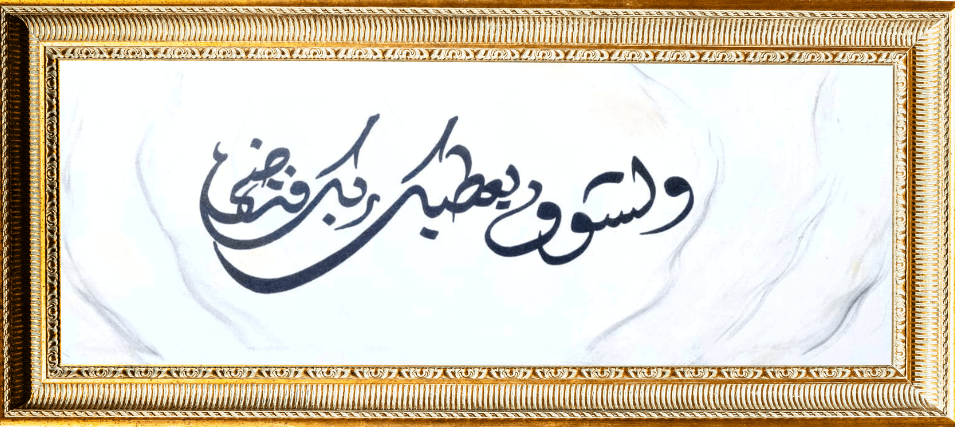 ولسوف يعطيك ربك فترضى